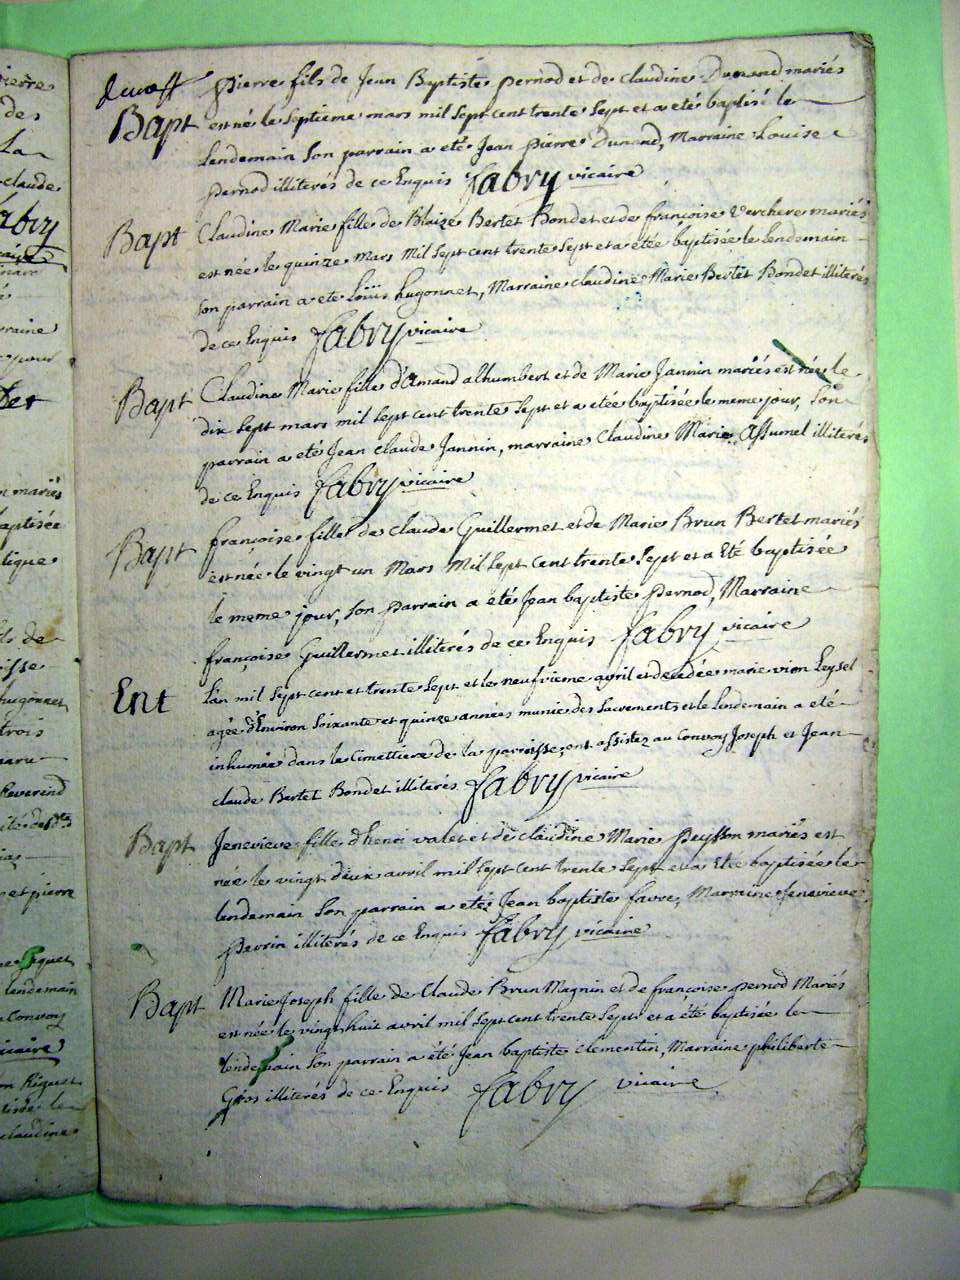 Bapt
pierre fils de Jean Baptiste pernod et de claudine Dunand mariés
est né le septieme mars mil sept cent trente sept et a eté baptisé le
lendemain son parrain a eté Jean pierre Dunand, Marraine Louise
pernod illiterés de ce Enquis fabry vicaire
Bapt
Claudine Marie fille de Blaize Bertet Bondet et de françoise Verchere mariés
est née le quinze mars mil sept cent trente sept et a etée baptisée le lendemain
son parrain a eté Loüis hugonnet, Marraine claudine Marie Bertet Bondet illiterés
de ce Enquis fabry vicaire
Bapt
Claudine Marie fille d'Amand alhumbert et de Marie Jannin mariés est née le
dix sept mars mil sept cent trente sept et a etée baptisée le meme jour, son
parrain a eté Jean claude Jannin, marraine Claudine Marie Assumel illiterés
de ce Enquis fabry vicaire
Bapt
françoise fille de Claude Guillermet et de Marie Brun Bertet mariés
est née le vingt un Mars Mil sept cent trente sept et a Eté baptisée
le meme jour, son parrain a eté Jean baptiste pernod, Marraine
françoise Guillermet illiterés de ce Enquis fabry vicaire
Ent
L'an mil sept cent et trente sept et le neufvieme avril est decedée marie vion Leysel
agée d'Environ soixante et quinze années munie des sacrements et le lendemain a eté
inhumée dans le Cimettiere de la parroisse, ont assistez au Convoy Joseph et Jean
claude Bertet Bondet illiterés fabry vicaire
Bapt
Jenevieve fille d'henri valet et de claudine Marie peysson mariés est
née le vingt deux avril mil sept cent trente sept et a Eté baptisée le
lendemain son parrain a eté Jean baptiste favre, Marraine Jenevieve
perrin illiterés de ce Enquis fabry vicaire
Bapt
Marie Joseph fille de Claude Brun Magnin et de françoise pernod Mariés
est née le vingt huit avril mil sept cent trente sept et a été baptisée le
lendemain son parrain a été Jean baptiste Clementin, Marraine philiberte
Gros illiterés de ce Enquis fabry vicaire